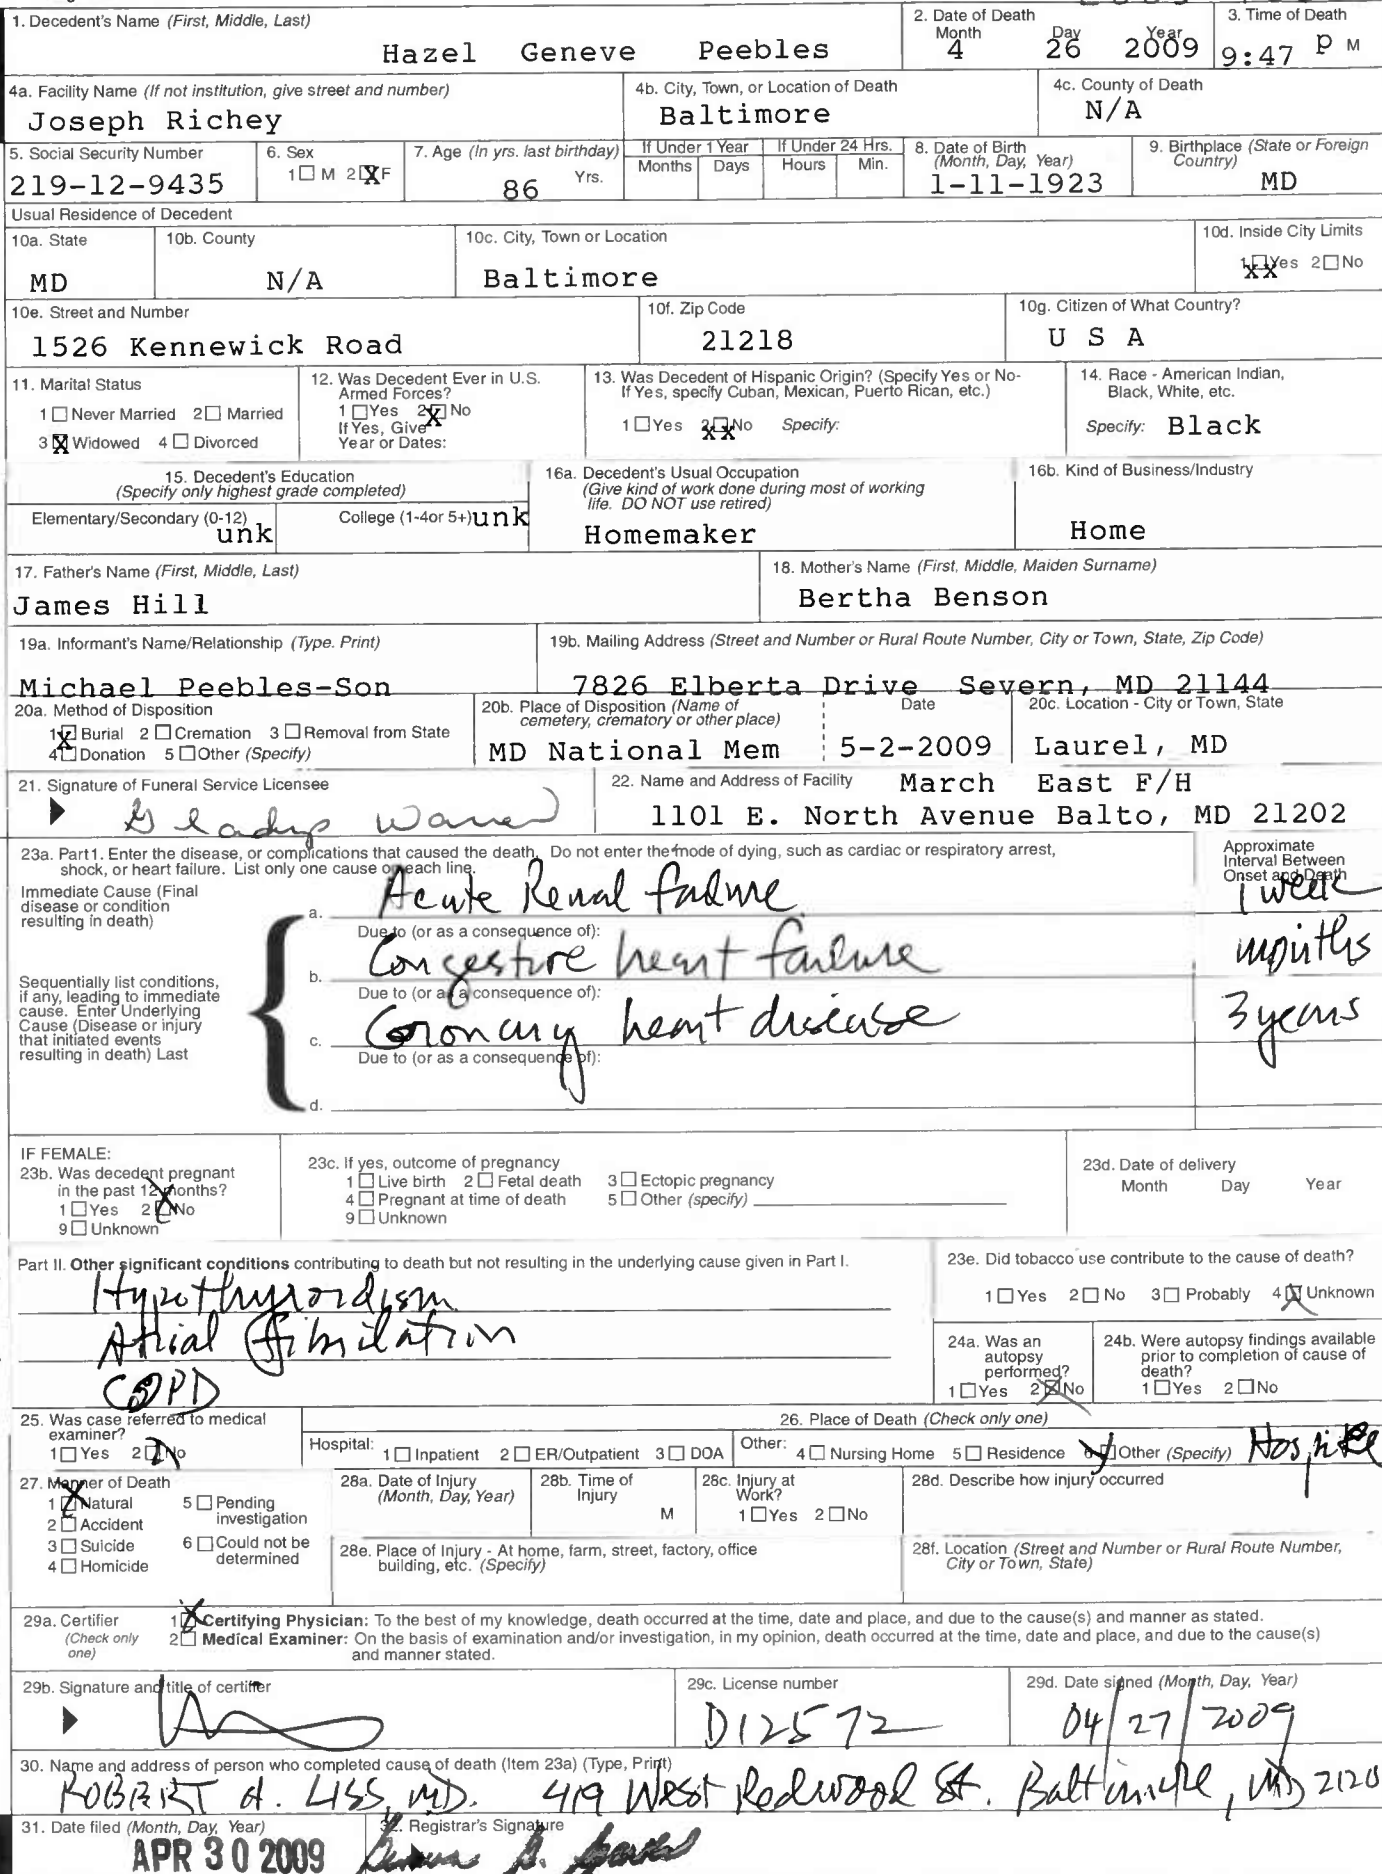 1. Decedent's Name (First, Middle, Last)
Hazel Geneve Peebles
2. Date of Death
Month Day Year
4 26 2009
3. Time of Death
9:47 P M
4a. Facility Name (If not institution, give street and number)
Joseph Richey
4b. City, Town, or Location of Death
Baltimore
4c. County of Death
N/A
5. Social Security Number
219-12-9435
6. Sex
1 M 2 X F
7. Age (In yrs. last birthday)
86 Yrs.
If Under 1 Year
Months Days
If Under 24 Hrs.
Hours Min.
8. Date of Birth
(Month, Day, Year)
1-11-1923
9. Birthplace (State or Foreign
Country)
MD
Usual Residence of Decedent
10a. State
MD
10b. County
N/A
10c. City, Town or Location
Baltimore
10d. Inside City Limits
1 XX Yes 2 No
10e. Street and Number
1526 Kennewick Road
10f. Zip Code
21218
10g. Citizen of What Country?
U S A
11. Marital Status
1 Never Married 2 Married
3 X Widowed 4 Divorced
12. Was Decedent Ever in U.S.
Armed Forces?
1 Yes 2 X No
If Yes, Give
Year or Dates:
13. Was Decedent of Hispanic Origin? (Specify Yes or No-
If Yes, specify Cuban, Mexican, Puerto Rican, etc.)
1 Yes 2 XX No Specify:
14. Race - American Indian,
Black, White, etc.
Specify: Black
15. Decedent's Education
(Specify only highest grade completed)
Elementary/Secondary (0-12)
unk
College (1-4or 5+) unk
16a. Decedent's Usual Occupation
(Give kind of work done during most of working
life. DO NOT use retired)
Homemaker
16b. Kind of Business/Industry
Home
17. Father's Name (First, Middle, Last)
James Hill
18. Mother's Name (First, Middle, Maiden Surname)
Bertha Benson
19a. Informant's Name/Relationship (Type. Print)
Michael Peebles-Son
19b. Mailing Address (Street and Number or Rural Route Number, City or Town, State, Zip Code)
7826 Elberta Drive Severn, MD 21144
20a. Method of Disposition
1 X Burial 2 Cremation 3 Removal from State
4 Donation 5 Other (Specify)
20b. Place of Disposition (Name of
cemetery, crematory or other place)
MD National Mem
Date
5-2-2009
20c. Location - City or Town, State
Laurel, MD
21. Signature of Funeral Service Licensee
Gladys
22. Name and Address of Facility March East F/H
1101 E. North Avenue Balto, MD 21202
23a. Part1. Enter the disease, or complications that caused the death. Do not enter the mode of dying, such as cardiac or respiratory arrest,
shock, or heart failure. List only one cause on each line.
Approximate
Interval Between
Onset and Death
Immediate Cause (Final
disease or condition
resulting in death)
a. Acute Renal failure 1 week
Due to (or as a consequence of):
b. Congestive heart failure months
Due to (or as a consequence of):
c. Coronary heart disease 3 years
Due to (or as a consequence of):
d.
Sequentially list conditions,
if any, leading to immediate
cause. Enter Underlying
Cause (Disease or injury
that initiated events
resulting in death) Last
IF FEMALE:
23b. Was decedent pregnant
in the past 12 months?
1 Yes 2 X No
9 Unknown
23c. If yes, outcome of pregnancy
1 Live birth 2 Fetal death 3 Ectopic pregnancy
4 Pregnant at time of death 5 Other (specify)
9 Unknown
23d. Date of delivery
Month Day Year
Part II. Other significant conditions contributing to death but not resulting in the underlying cause given in Part I.
Hypothyroidism
Atrial fibrilation
COPD
23e. Did tobacco use contribute to the cause of death?
1 Yes 2 No 3 Probably 4 X Unknown
24a. Was an
autopsy
performed?
1 Yes 2 X No
24b. Were autopsy findings available
prior to completion of cause of
death?
1 Yes 2 No
25. Was case referred to medical
examiner?
1 Yes 2 No
26. Place of Death (Check only one)
Hospital: 1 Inpatient 2 ER/Outpatient 3 DOA
Other: 4 Nursing Home 5 Residence 6 Other (Specify) Hospice
27. Manner of Death
1 X Natural
2 Accident
3 Suicide
4 Homicide
5 Pending
investigation
6 Could not be
determined
28a. Date of Injury
(Month, Day, Year)
28b. Time of
Injury
M
28c. Injury at
Work?
1 Yes 2 No
28d. Describe how injury occurred
28e. Place of Injury - At home, farm, street, factory, office
building, etc. (Specify)
28f. Location (Street and Number or Rural Route Number,
City or Town, State)
29a. Certifier
(Check only
one)
1 X Certifying Physician: To the best of my knowledge, death occurred at the time, date and place, and due to the cause(s) and manner as stated.
2 Medical Examiner: On the basis of examination and/or investigation, in my opinion, death occurred at the time, date and place, and due to the cause(s)
and manner stated.
29b. Signature and title of certifier
29c. License number
D12572
29d. Date signed (Month, Day, Year)
04/27/2009
30. Name and address of person who completed cause of death (Item 23a) (Type, Print)
ROBERT A. LISS, MD. 419 West Redwood St. Baltimore, MD 2120
31. Date filed (Month, Day, Year)
APR 30 2009
32. Registrar's Signature